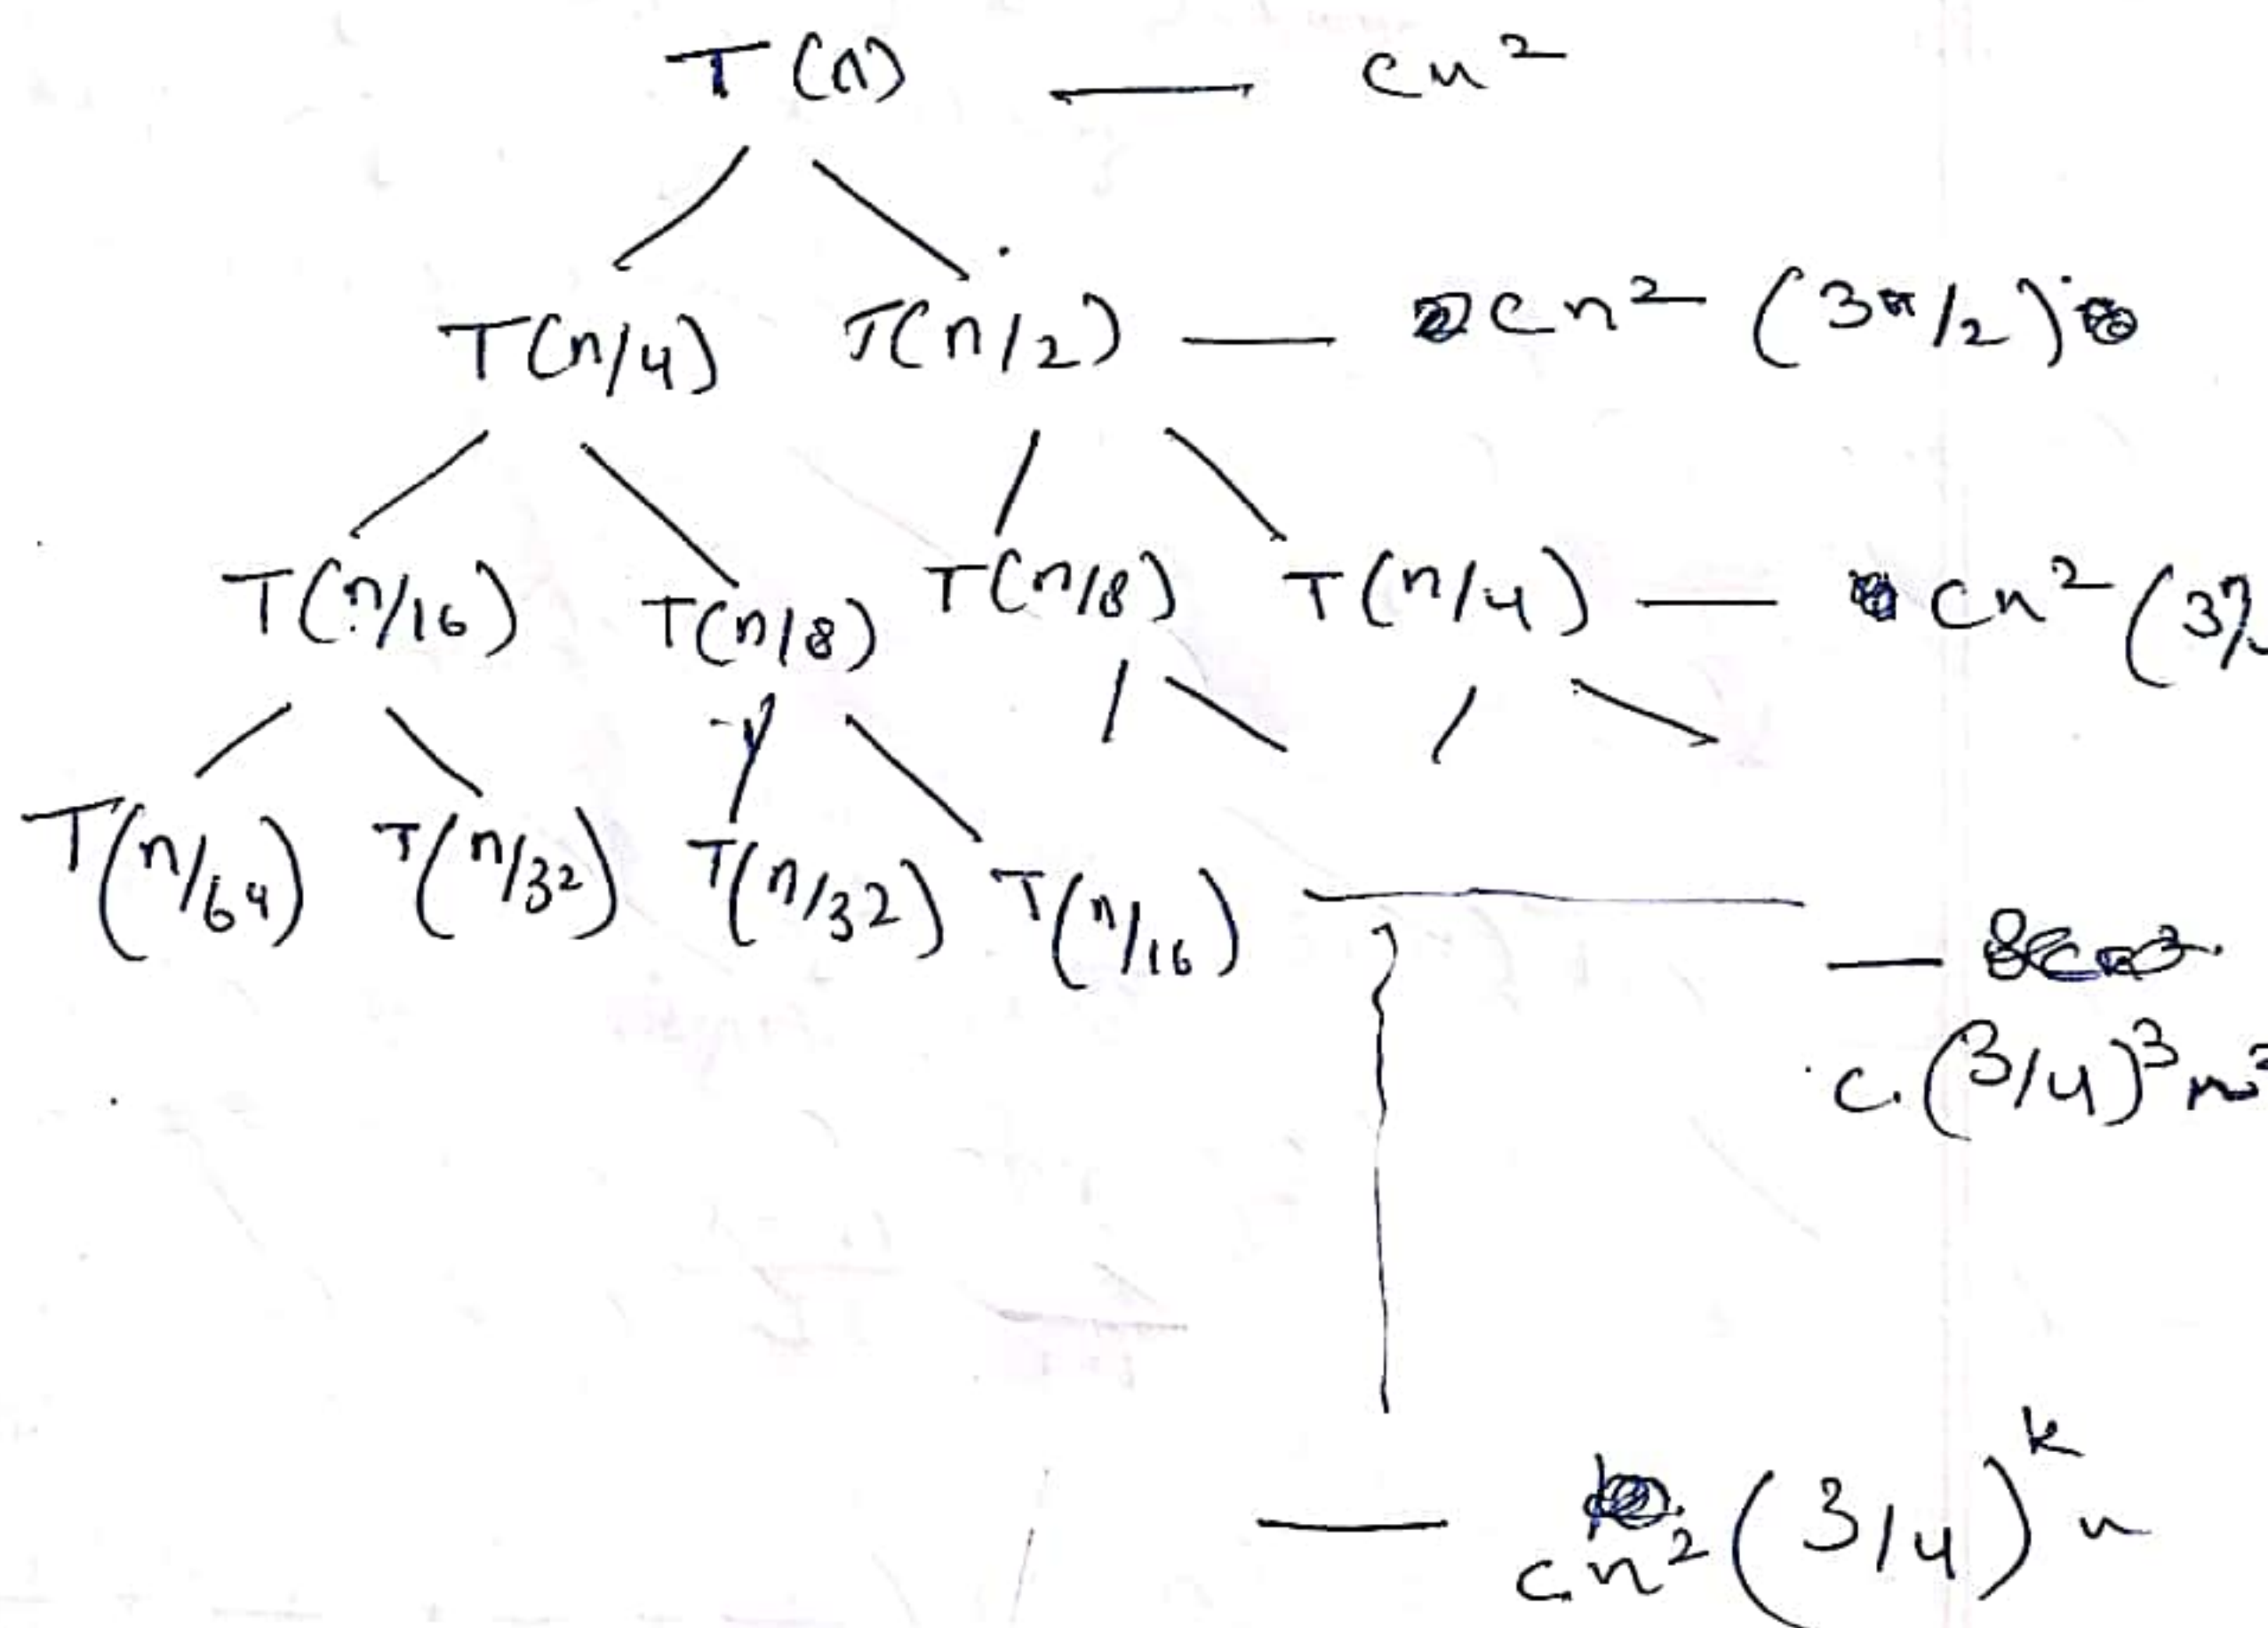 T(n) — cn²
T(n/4) T(n/2) — cn² (3n/2)
T(n/16) T(n/8) T(n/8) T(n/4) — cn² (3
T(n/64) T(n/32) T(n/32) T(n/16) —
c. (3/4)³ n²
c.n² (3/4)ᵏ n